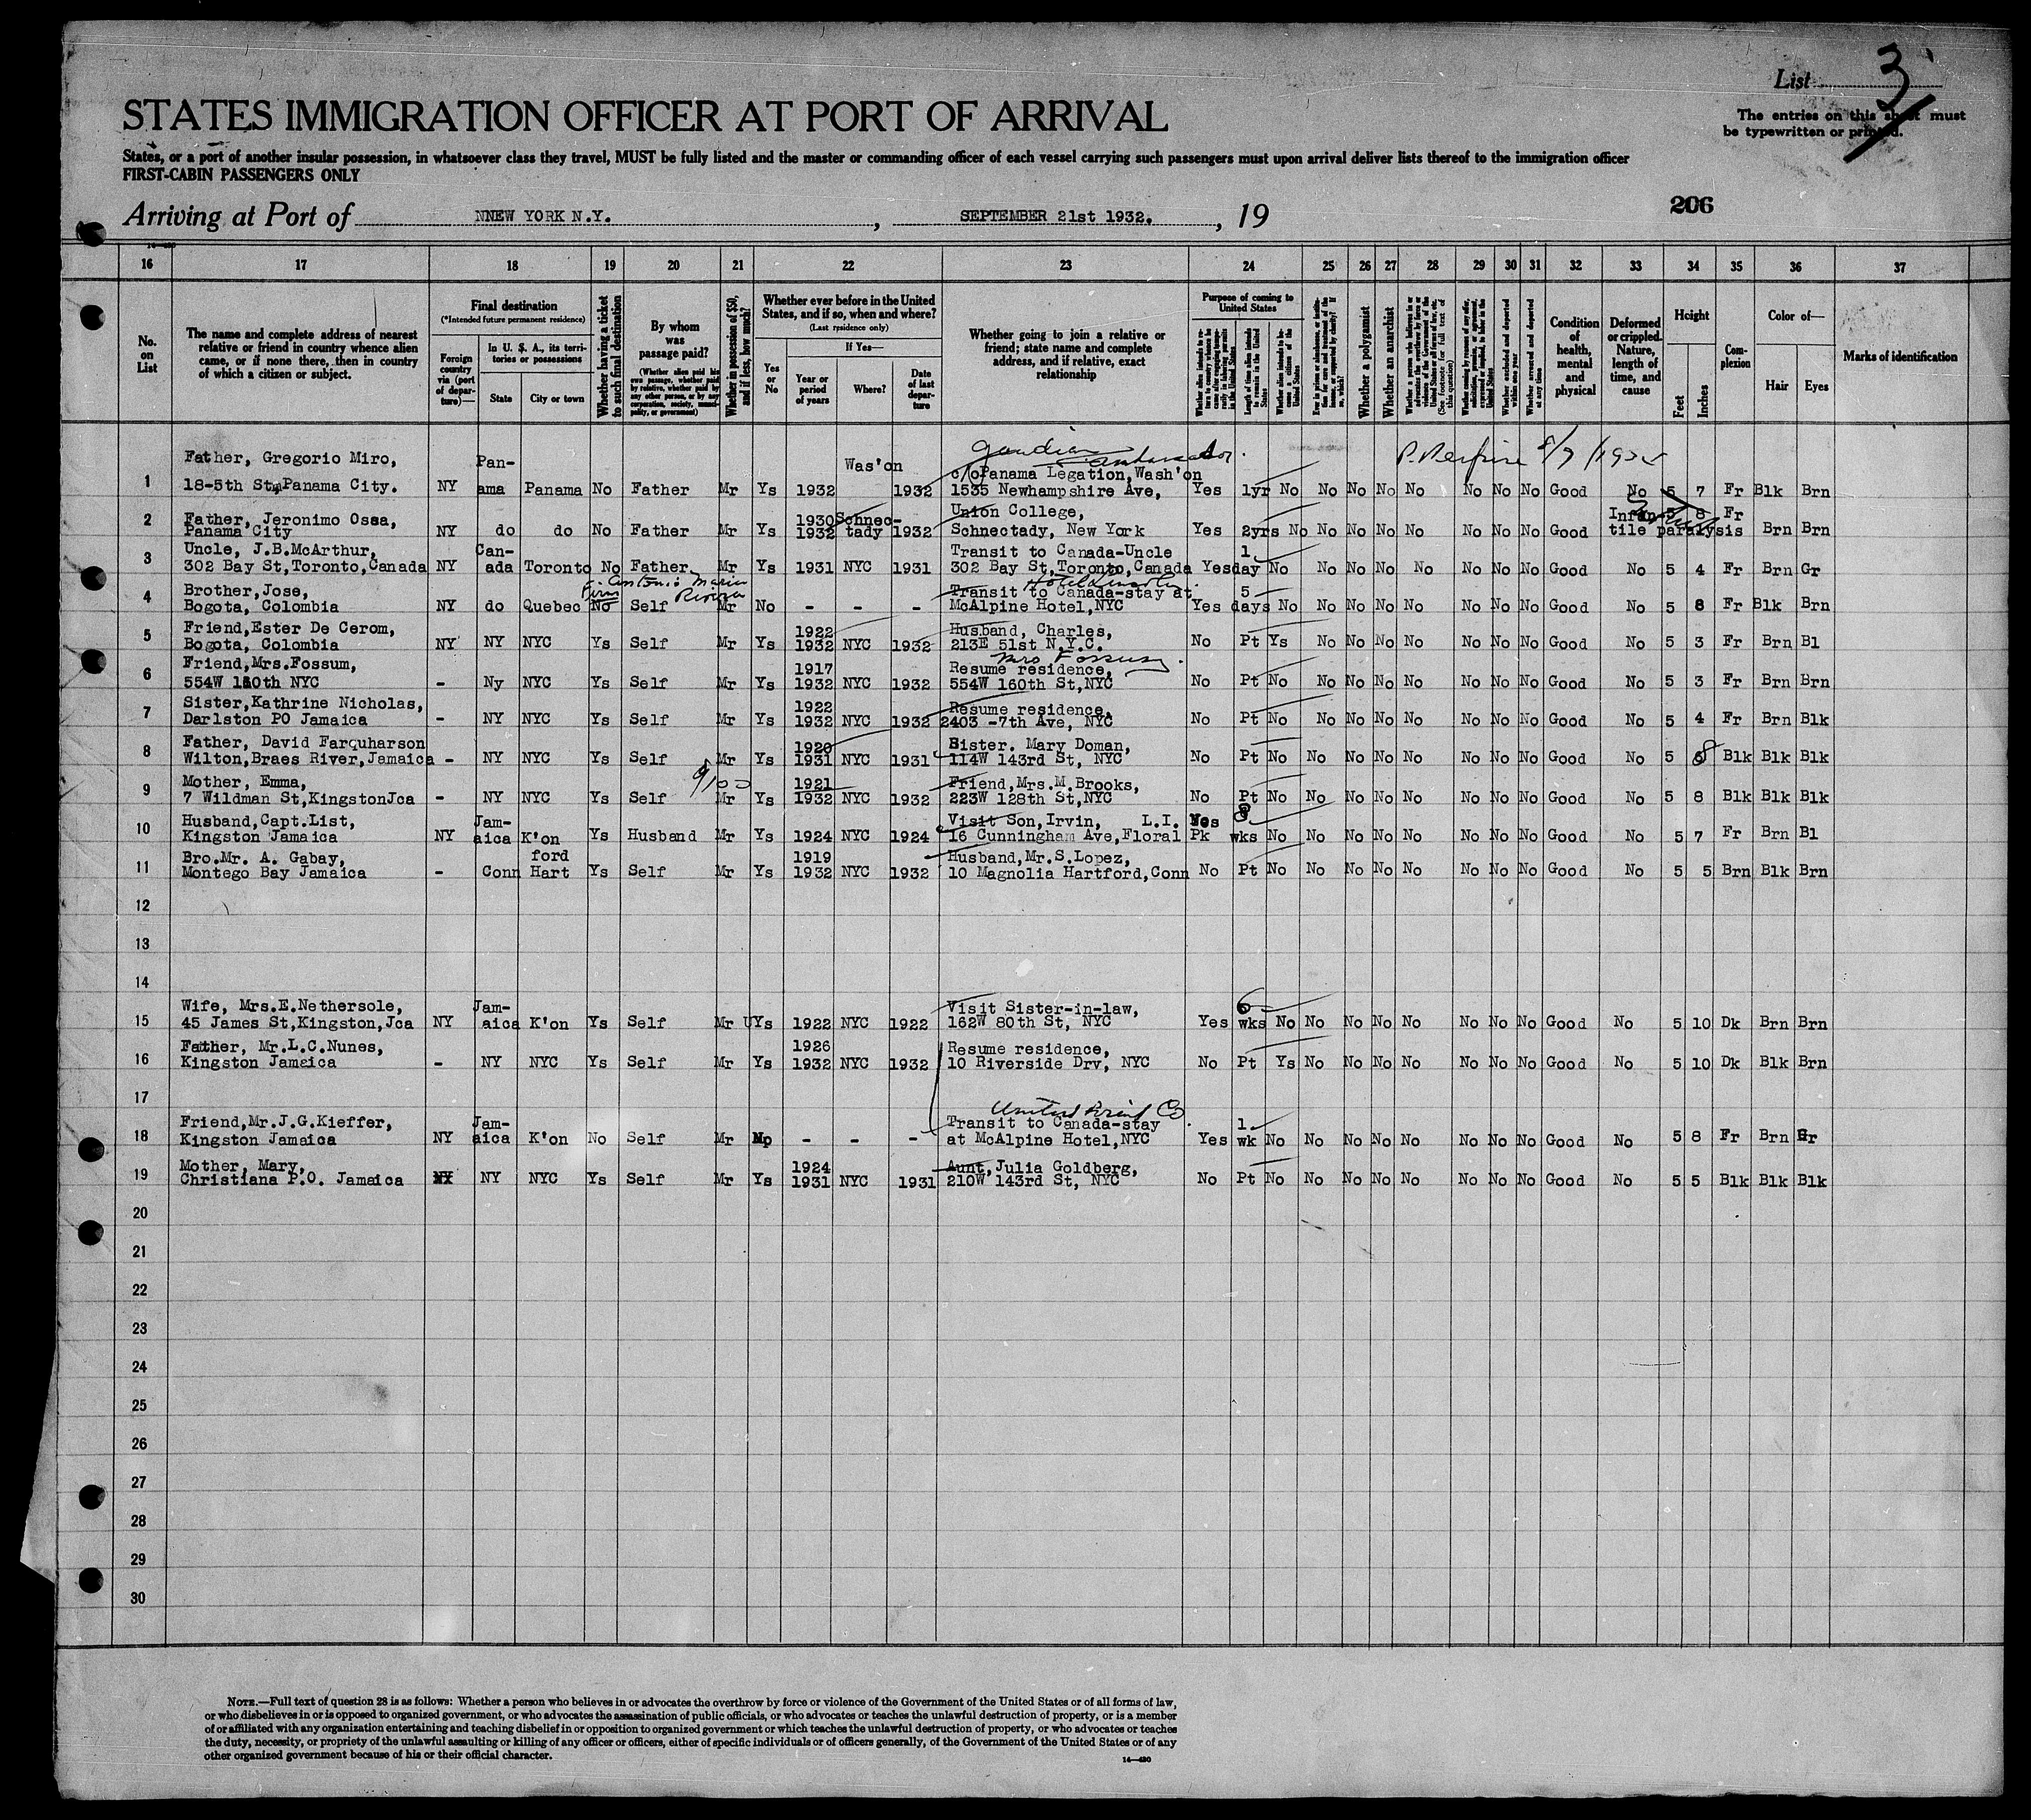 List 3
STATES IMMIGRATION OFFICER AT PORT OF ARRIVAL
The entries on this sheet must
be typewritten or printed.
States, or a port of another insular possession, in whatsoever class they travel, MUST be fully listed and the master or commanding officer of each vessel carrying such passengers must upon arrival deliver lists thereof to the immigration officer
FIRST-CABIN PASSENGERS ONLY
Arriving at Port of NNEW YORK N.Y. , SEPTEMBER 21st 1932. , 19
206
16 17 18 19 20 21 22 23 24 25 26 27 28 29 30 31 32 33 34 35 36 37
No. on List
The name and complete address of nearest relative or friend in country whence alien came, or if none there, then in country of which a citizen or subject.
Final destination
(*Intended future permanent residence)
Foreign country via (port of departure)—
In U. S. A., its territories or possessions
State City or town
Whether having a ticket to such final destination
By whom was passage paid?
(Whether alien paid his own passage, whether paid by relative, whether paid by any other person, or by any corporation, society, municipality, or government)
Whether in possession of $50, and if less, how much?
Whether ever before in the United States, and if so, when and where?
(Last residence only)
Yes or No
If Yes—
Year or period of years
Where?
Date of last departure
Whether going to join a relative or friend; state name and complete address, and if relative, exact relationship
Purpose of coming to United States
Length of time alien intends to remain in the United States
Whether alien intends to become a citizen of the United States
Whether a polygamist
Whether an anarchist
Condition of health, mental and physical
Deformed or crippled. Nature, length of time, and cause
Height
Feet Inches
Complexion
Color of—
Hair Eyes
Marks of identification
Father, Gregorio Miro, Pan- Was'on c/o Panama Legation, Wash'on
1 18-5th St, Panama City. NY ama Panama No Father Mr Ys 1932 1932 1535 Newhampshire Ave, Yes 1yr No No No No No No No No Good No 5 7 Fr Blk Brn
Father, Jeronimo Ossa, 1930 Schnec- Union College, Infan- 5 8 Fr
2 Panama City NY do do No Father Mr Ys 1932 tady 1932 Schnectady, New York Yes 2yrs No No No No No No No No Good tile paralysis Brn Brn
Uncle, J.B.McArthur, Can- Transit to Canada-Uncle 1
3 302 Bay St,Toronto,Canada NY ada Toronto No Father Mr Ys 1931 NYC 1931 302 Bay St,Toronto,Canada Yes day No No No No No No No No Good No 5 4 Fr Brn Gr
Antonio Maria Hotel Lincoln
Brother,Jose, Transit to Canada-stay at 5
4 Bogota, Colombia NY do Quebec No Self Mr No - - - McAlpine Hotel,NYC Yes days No No No No No No No No Good No 5 8 Fr Blk Brn
Friend,Ester De Cerom, 1922 Husband, Charles,
5 Bogota, Colombia NY NY NYC Ys Self Mr Ys 1932 NYC 1932 213E 51st N.Y.C. No Pt Ys No No No No No No No Good No 5 3 Fr Brn Bl
Mrs Fossum
Friend,Mrs.Fossum, 1917 Resume residence,
6 554W 160th NYC - Ny NYC Ys Self Mr Ys 1932 NYC 1932 554W 160th St,NYC No Pt No No No No No No No No Good No 5 3 Fr Brn Brn
Sister,Kathrine Nicholas, 1922 Resume residence,
7 Darlston PO Jamaica - NY NYC Ys Self Mr Ys 1932 NYC 1932 2403 -7th Ave, NYC No Pt No No No No No No No No Good No 5 4 Fr Brn Blk
Father, David Farquharson 1920 Sister. Mary Doman,
8 Wilton,Braes River,Jamaica - NY NYC Ys Self Mr Ys 1931 NYC 1931 114W 143rd St, NYC No Pt No No No No No No No No Good No 5 8 Blk Blk Blk
Mother, Emma, 1921 Friend,Mrs.M.Brooks,
9 7 Wildman St,KingstonJca - NY NYC Ys Self Mr Ys 1932 NYC 1932 223W 128th St,NYC No Pt No No No No No No No No Good No 5 8 Blk Blk Blk
Husband,Capt.List, Jam- Visit Son,Irvin, L.I. Yes
10 Kingston Jamaica NY aica K'on Ys Husband Mr Ys 1924 NYC 1924 16 Cunningham Ave,Floral Pk wks No No No No No No No No Good No 5 7 Fr Brn Bl
Bro.Mr. A. Gabay, ford 1919 Husband,Mr.S.Lopez,
11 Montego Bay Jamaica - Conn Hart Ys Self Mr Ys 1932 NYC 1932 10 Magnolia Hartford,Conn No Pt No No No No No No No No Good No 5 5 Brn Blk Brn
12
13
14
Wife, Mrs.E.Nethersole, Jam- Visit Sister-in-law, 6
15 45 James St,Kingston,Jca NY aica K'on Ys Self Mr U Ys 1922 NYC 1922 162W 80th St, NYC Yes wks No No No No No No No No Good No 5 10 Dk Brn Brn
Father, Mr.L.C.Nunes, 1926 Resume residence,
16 Kingston Jamaica - NY NYC Ys Self Mr Ys 1932 NYC 1932 10 Riverside Drv, NYC No Pt Ys No No No No No No No Good No 5 10 Dk Blk Brn
17
Friend,Mr.J.G.Kieffer, Jam- Transit to Canada-stay 1
18 Kingston Jamaica NY aica K'on No Self Mr No - - - at McAlpine Hotel,NYC Yes wk No No No No No No No No Good No 5 8 Fr Brn Gr
Mother, Mary, 1924 Aunt, Julia Goldberg,
19 Christiana P.O. Jamaica NY NY NYC Ys Self Mr Ys 1931 NYC 1931 210W 143rd St, NYC No Pt No No No No No No No No Good No 5 5 Blk Blk Blk
20
21
22
23
24
25
26
27
28
29
30
NOTE.—Full text of question 28 is as follows: Whether a person who believes in or advocates the overthrow by force or violence of the Government of the United States or of all forms of law,
or who disbelieves in or is opposed to organized government, or who advocates the assassination of public officials, or who advocates or teaches the unlawful destruction of property, or is a member
of or affiliated with any organization entertaining and teaching disbelief in or opposition to organized government or which teaches the unlawful destruction of property, or who advocates or teaches
the duty, necessity, or propriety of the unlawful assaulting or killing of any officer or officers, either of specific individuals or of officers generally, of the Government of the United States or of any
other organized government because of his or their official character.
14—430